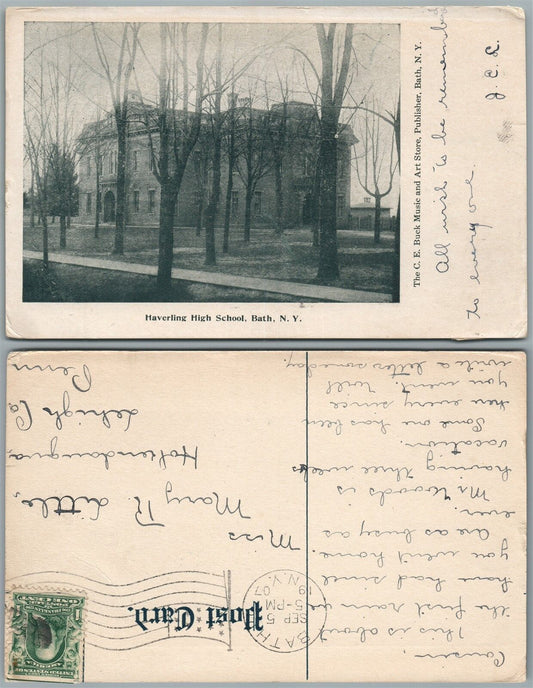 Haverling High School, Bath, N. Y.
The C. E. Buck Music and Art Store, Publisher, Bath, N. Y.
All wish to be remembered
to every one.
J. C. L.
Post Card.
BATH
SEP 5
5-PM
19 07
N.Y.
ONE CENT
1
Miss
Mary R. Little,
Hokendauqua,
Lehigh Co.
Penn
Cousin
This is about
the first rain we
have had since
you went home.
Are as busy as
ever.
Mr. Woods is
having three weeks
vacation.
Some one has been
here every since
you went. Will
write a letter someday.